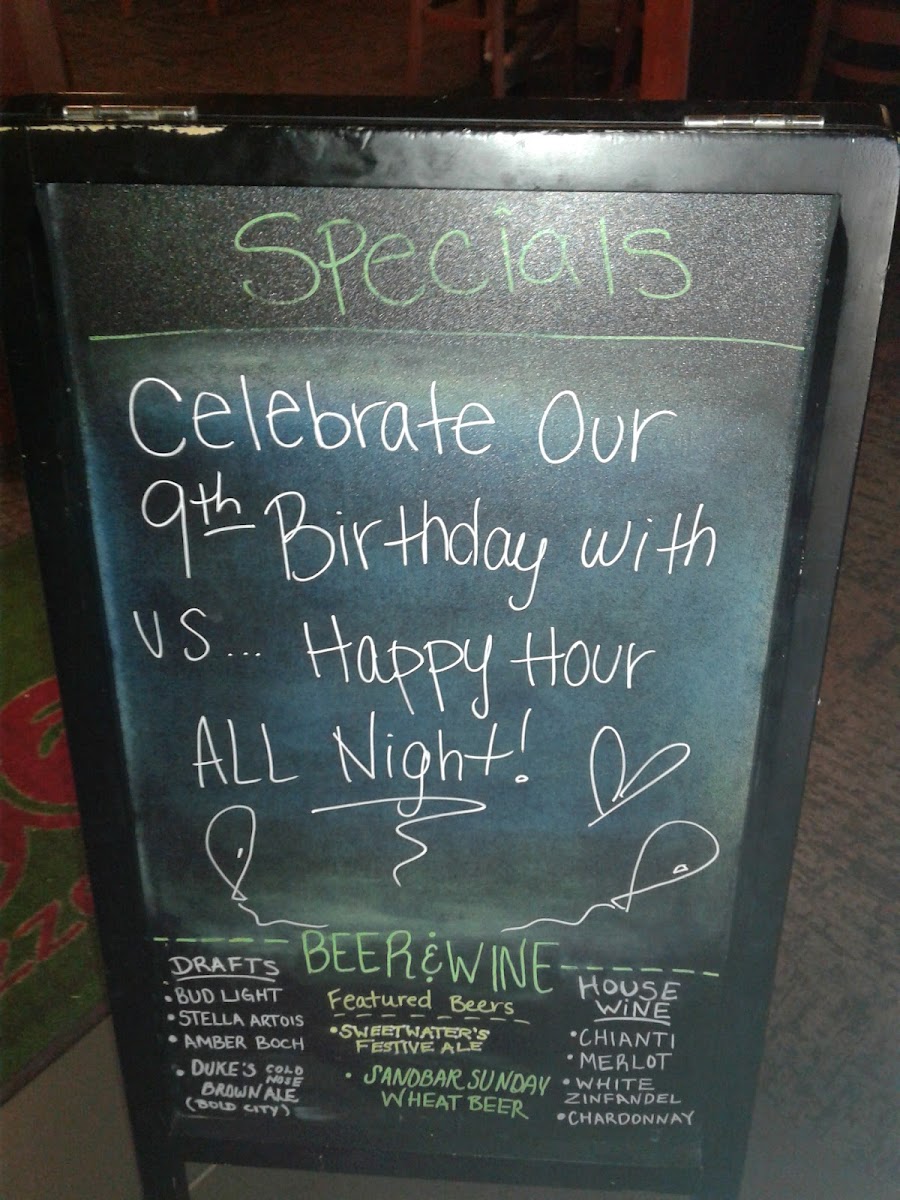 Specials
Celebrate Our
9th Birthday with
us... Happy Hour
ALL Night!
BEER & WINE
DRAFTS
• BUD LIGHT
• STELLA ARTOIS
• AMBER BOCH
• DUKE'S COLD NOSE
BROWN ALE
(BOLD CITY)
Featured Beers
• SWEETWATER'S
FESTIVE ALE
• SANDBAR SUNDAY
WHEAT BEER
HOUSE
WINE
• CHIANTI
• MERLOT
• WHITE
ZINFANDEL
• CHARDONNAY